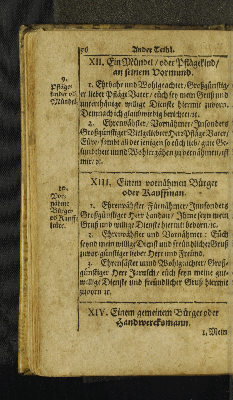 76 Ander Theil.
XII. Ein Mündel / oder Pflägekind /
an seinem Vormund.
9.
Pfläge-
kinder od.
Mündel.
1. Ehrliche und Wohlgeachte, Großgünstig-
er lieber Pfläge Vater / euch sey mein Gruß und
unterthänige willige Dienste hiermit zuvorn.
Demnach ich glaubwürdig berichtet ꝛc.
2. Ehrenväster / Vornähmer / Insonders
Großgünstiger Vielgeliebter Herr Pfläge Vater /
Gesundheit und Wohlergähen zu vernähmen, ist
mir ꝛc.
10.
Vor-
nähme
Bürger
od. Kauff-
leute.
XIII. Einem vornähmen Bürger
oder Kauffman.
1. Ehrenväster Fürnähmer Insonders
Großgünstiger Herr Landau / Ihme seyn mein
Gruß und willige Dienste hiermit bevorn. ꝛc.
2. Ehrenväster und Vornähmer: Euch
seynd mein willige Dienst und freündlicher Gruß
zuvor günstiger lieber Herr und Freünd.
3. Ehrenväster und Wohlgeachter / Groß-
günstiger Herr / euch seyn meine gut-
willige Dienste und freündlicher Gruß hiermit
zuvorn ꝛc.
XIV. Einem gemeinem Bürger oder
Handwercksmann.
1. Mein